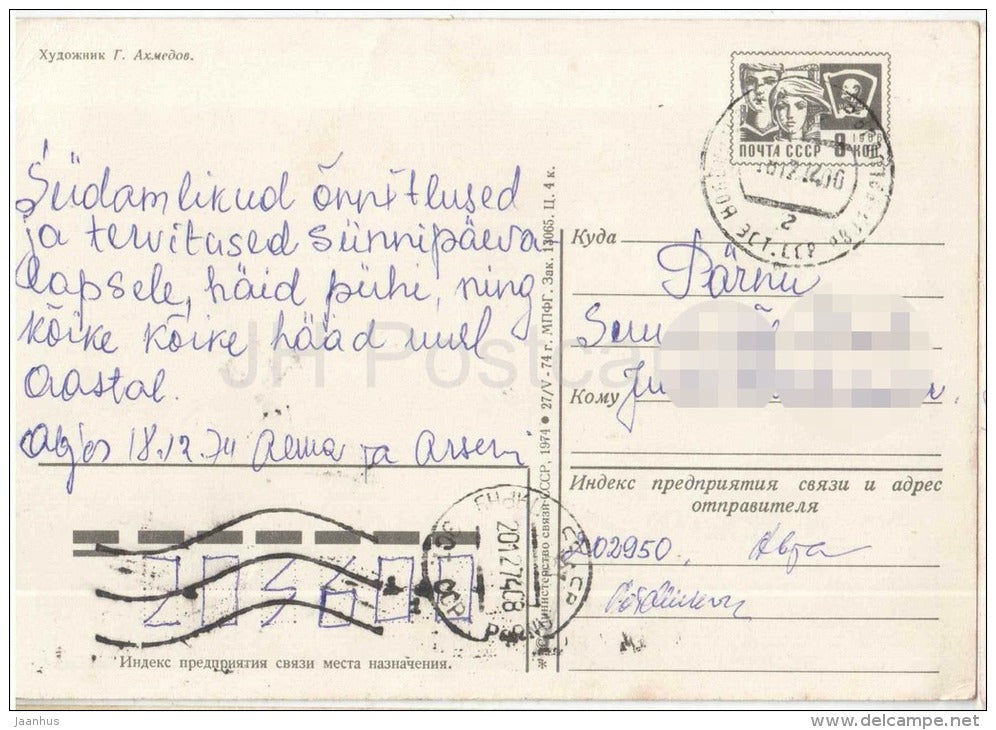 Художник Г. Ахмедов.
ПОЧТА СССР 8 КОП
1966
Südamlikud õnnitlused
ja tervitused sünnipäeva-
lapsele, häid pühi, ning
kõike kõike hääd uuel
aastal.
18.12.74 Alma ja Arseni
Министерство связи СССР, 1974 ● 27/V-74 г. МПФГ. Зак. 13065. Ц. 4 к.
Куда
Pärnu
Кому
Индекс предприятия связи и адрес
отправителя
202950
203600
Индекс предприятия связи места назначения.
JH Postcards
jaanhus
www.delcampe.net